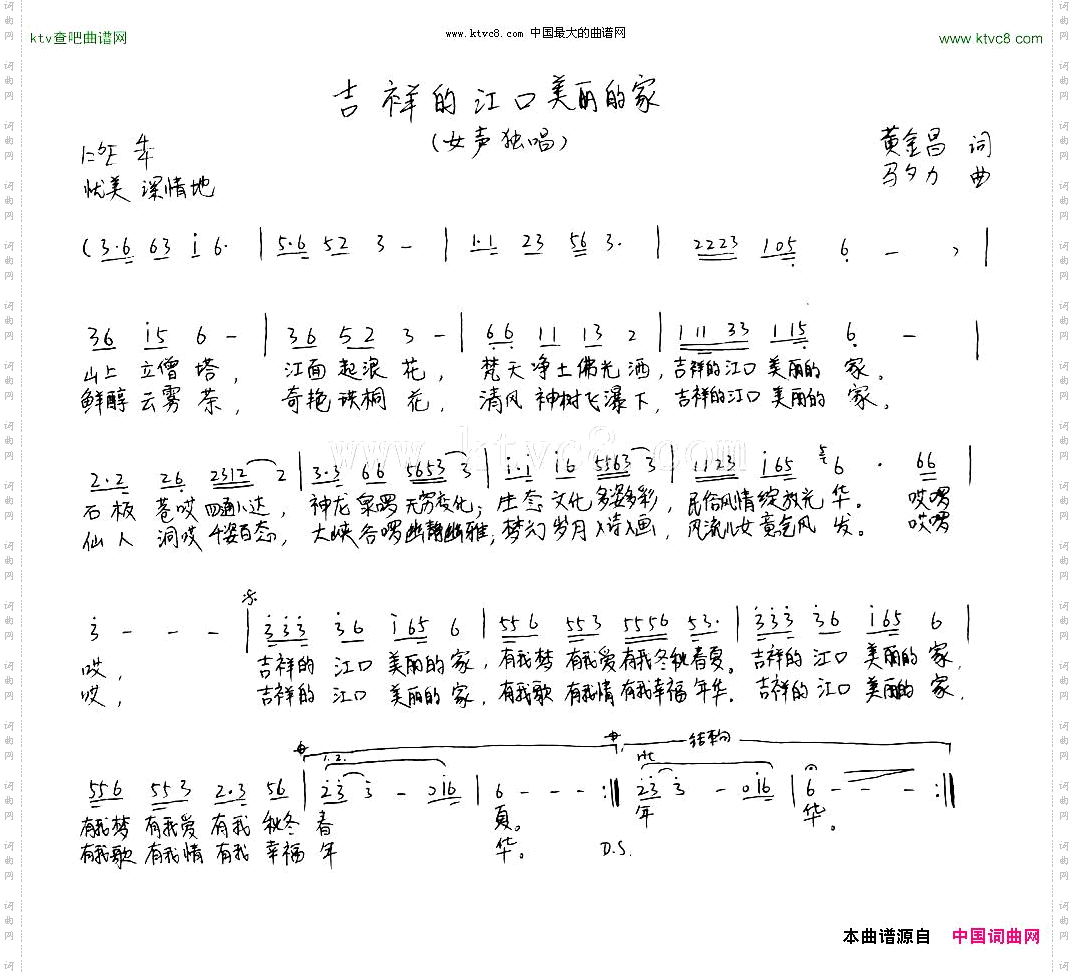 ktv查吧曲谱网
www.ktvc8.com 中国最大的曲谱网
www.ktvc8.com
吉祥的江口美丽的家
(女声独唱)
黄金昌 词
马夕力 曲
1=♭E 4/4
优美 深情地
(3·6 63 i 6· | 5·6 52 3 - | 1·1 23 56 3· | 2223 105 6 - ) |
36 i5 6 - | 36 52 3 - | 66 11 13 2 | 111 33 115 6 - |
山上 立僧 塔, 江面 起浪 花, 梵天净土佛光洒, 吉祥的江口 美丽的 家。
鲜醇 云雾 茶, 奇艳 珙桐 花, 清风 神树飞瀑下, 吉祥的江口 美丽的 家。
2·2 26 2312 2 | 3·3 66 5653 3 | i·i i6 5563 3 | 1123 i65 6 · 66 |
石板 巷哎 四通八达, 神龙 泉啰 无穷变化; 生态 文化 多姿多彩, 民俗风情绽放光 华。 哎啰
仙人 洞哎 千姿百态, 大峡谷啰幽静幽雅; 梦幻 岁月 入诗入画, 风流儿女 意气风 发。 哎啰
3 - - - | 333 36 i65 6 | 556 553 5556 53· | 333 36 i65 6 |
哎, 吉祥的 江口 美丽的 家, 有我梦 有我爱有我冬秋春夏。 吉祥的 江口 美丽的 家,
哎, 吉祥的 江口 美丽的 家, 有我歌 有我情有我幸福 年华。 吉祥的 江口 美丽的 家,
结束句
1.2. rit
556 553 2·3 56 | 23 3 - 0i6 | 6 - - - :‖ 23 3 - 0i6 | 6 - - - :‖
有我梦 有我爱 有我 秋冬 春 夏。 年 华。
有我歌 有我情 有我 幸福 年 华。 D.S.
www.ktvc8.com
本曲谱源自 中国词曲网